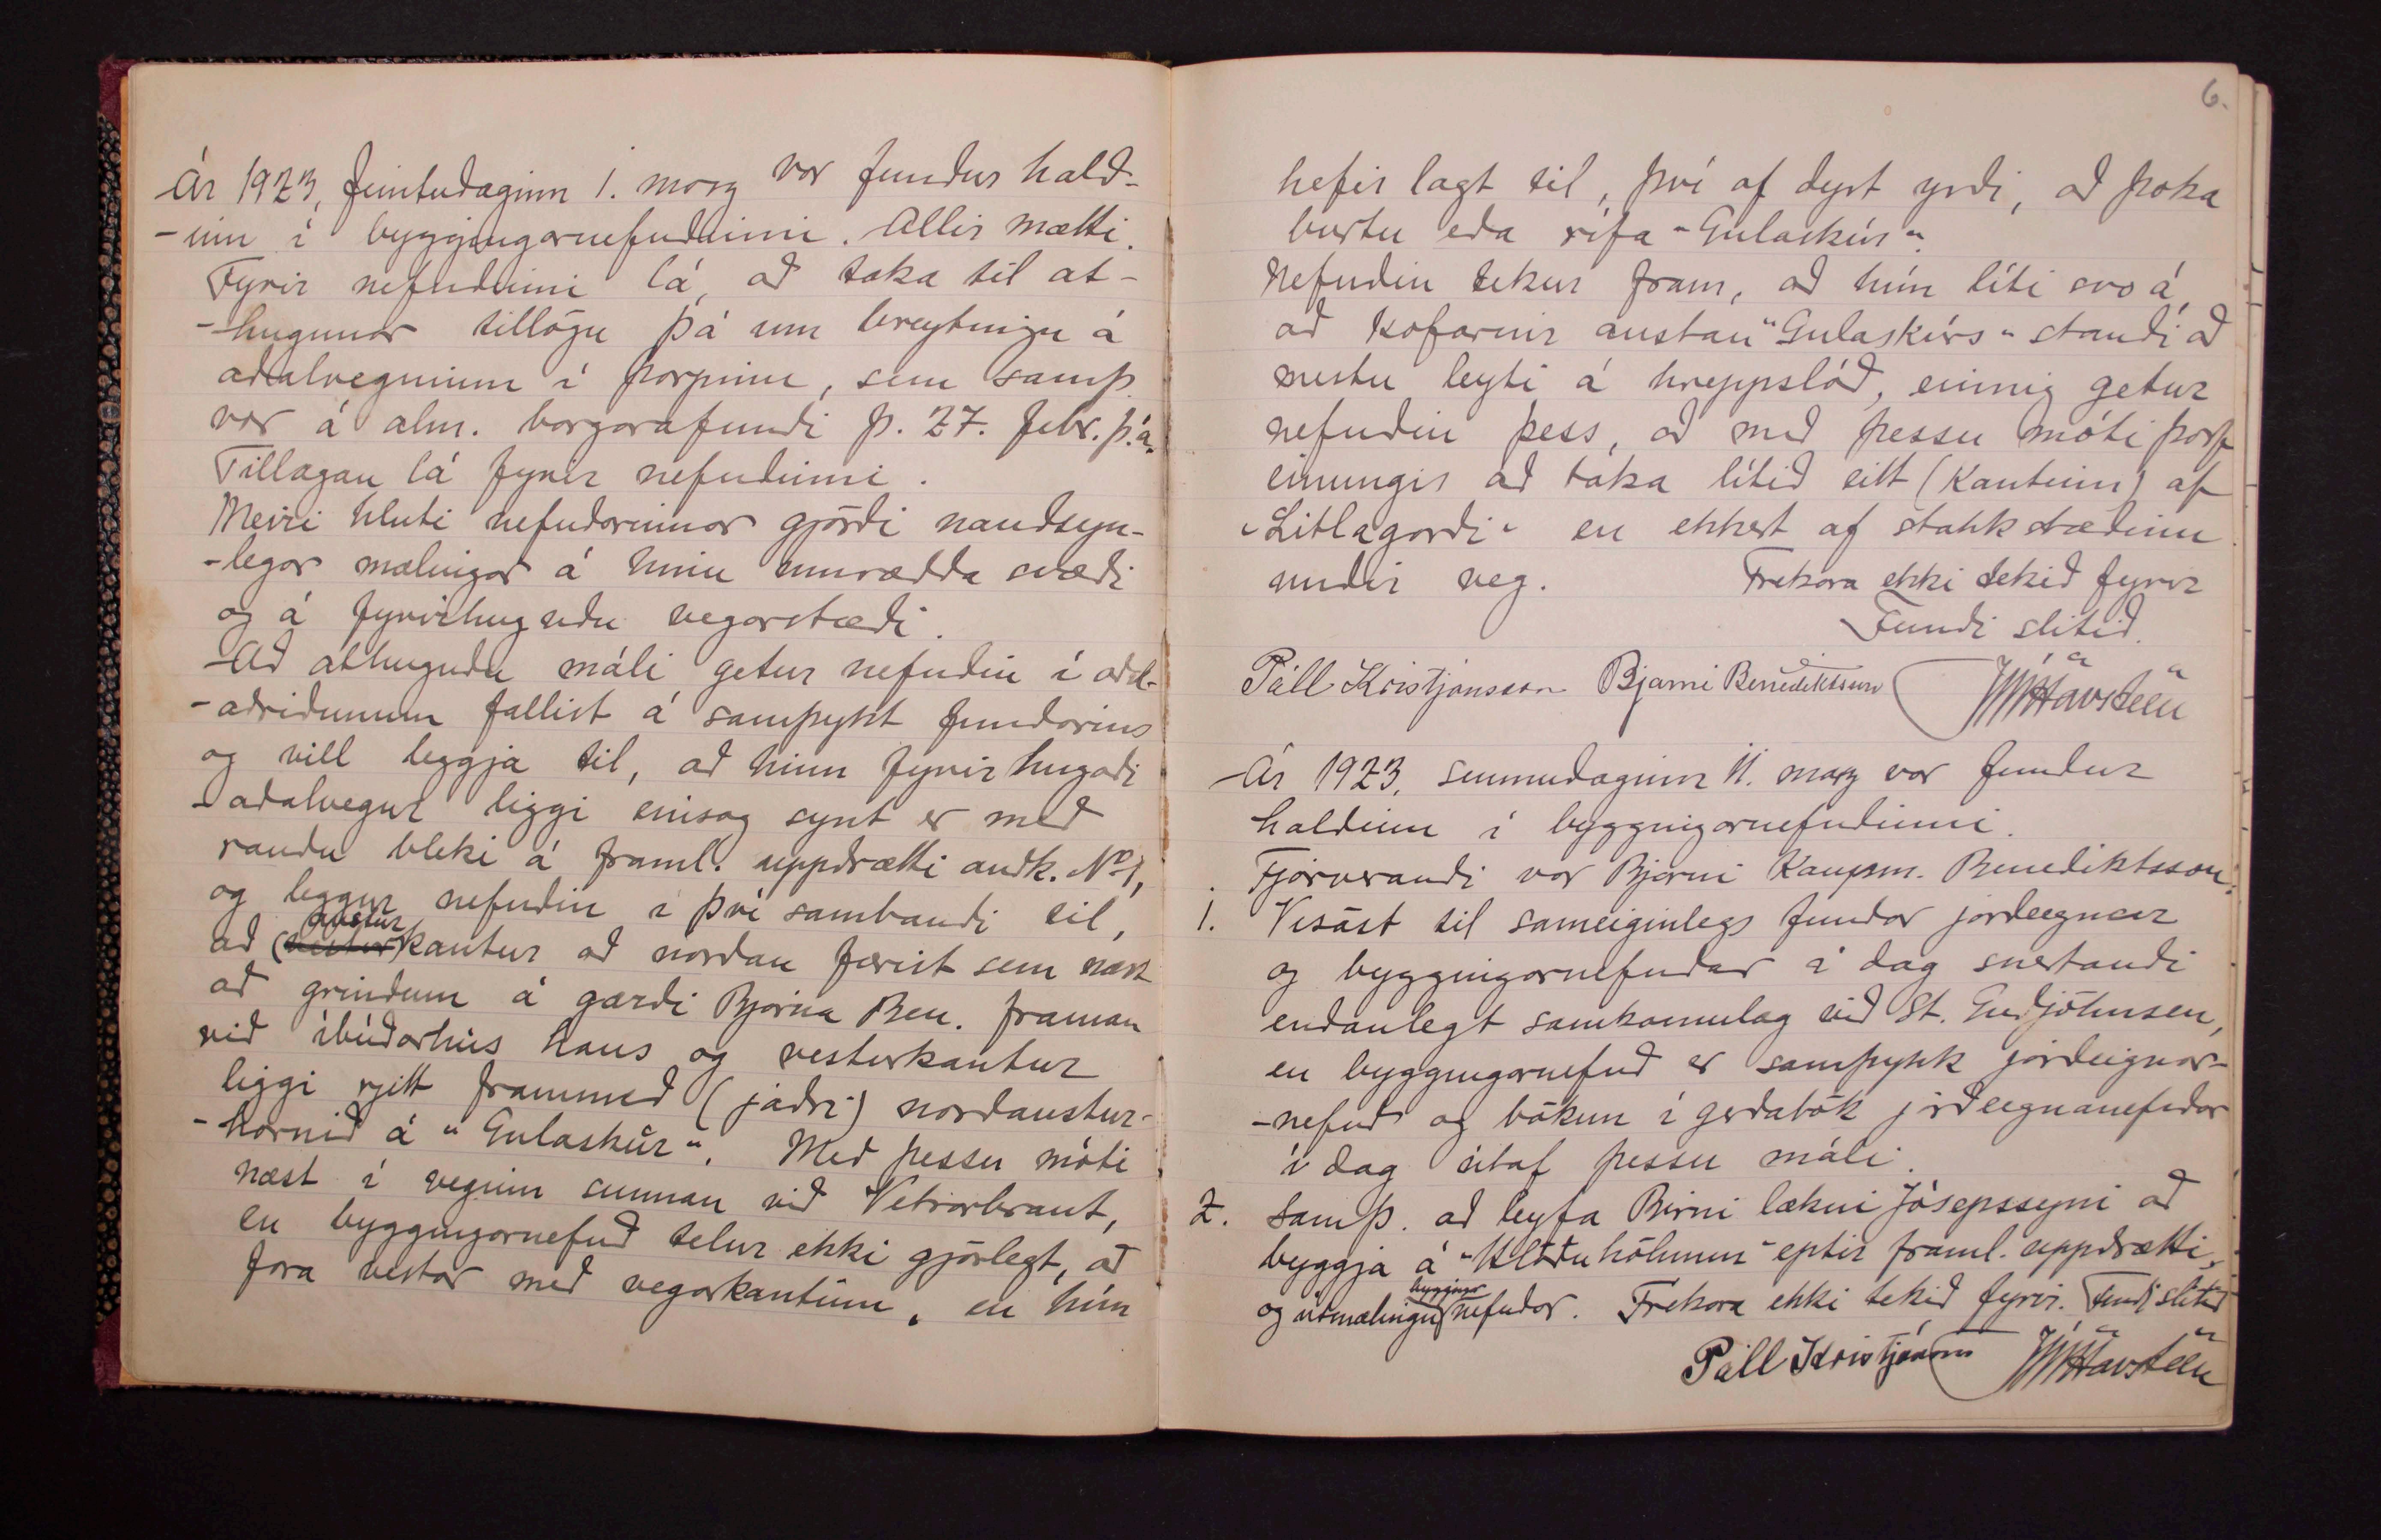 Ár 1923, fimtudaginn 1. marz var fundur hald-
-inn í byggingarnefndinni. Allir mætti.
Fyrir nefndinni lá, að taka til at-
-hugunar tillögu þá um breytingu á
aðalveginum í þorpinu, sem samþ.
var á alm. borgarafundi þ. 27. febr. þ.á.
Tillagan lá fyrir nefndinni.
Meiri hluti nefndarinnar gjörði nauðsyn-
-legar mælingar á hinu umrædda svæði
og á fyrirhuguðu vegarstæði.
Að athuguðu máli getur nefndin í aðal-
-atriðunum fallist á samþykt fundarins
og vill leggja til, að hinn fyrirhugaði
-aðalvegur liggi einsog synt er með
rauðu bleki á framl. uppdrætti auðk. No 1,
og leggur nefndin í því sambandi til,
að (austur)kantur að norðan færist sem næst
að grindum á garði Bjarna Ben. framan
við íbúðarhús hans og vesturkantur
liggi rjett frammeð (jaðri) norðaustur-
-hornið á "Gulaskúr". Með þessu móti
næst í veginn sunnan við Vetrarbraut,
en byggingarnefnd telur ekki gjörlegt, að
fara vestar með vegarkantinn, en hún
6.
hefir lagt til, því of dyrt yrði, að þoka
burtu eða rífa "Gulaskúr".
Nefndin tekur fram, að hún líti svo á,
að kofarnir austan "Gulaskúrs" standi að
mestu leyti á hreppslóð, einnig getur
nefndin þess, að með þessu móti þarf
einungis að taka lítið eitt (kantinn) af
"Litlagarði" en ekkert af stakkstæðinu
undir veg. Frekara ekki tekið fyrir
Fundi slitið.
Páll Kristjánsson Bjarni Benediktsson JHavsteen
Ár 1923, sunnudaginn 11. marz var fundur
haldinn í byggingarnefndinni.
Fjærverandi var Bjarni kaupm. Benediktsson.
1. Vísast til sameiginlegs fundar jarðeignar
og byggingarnefndar í dag snertandi
endanlegt samkomulag við St. Guðjohnsen,
en byggingarnefnd er samþykk jarðeignar-
-nefnd og bókun í gerðabók jarðeignanefndar
í dag útaf þessu máli.
2. Samþ. að leyfa Birni lækni Jósepssyni að
byggja á "Hlöðuhólnum" eptir framl. uppdrætti,
og útmælingu byggingarnefndar. Frekara ekki tekið fyrir. Fundi slitið
Páll Kristjánsson JHavsteen